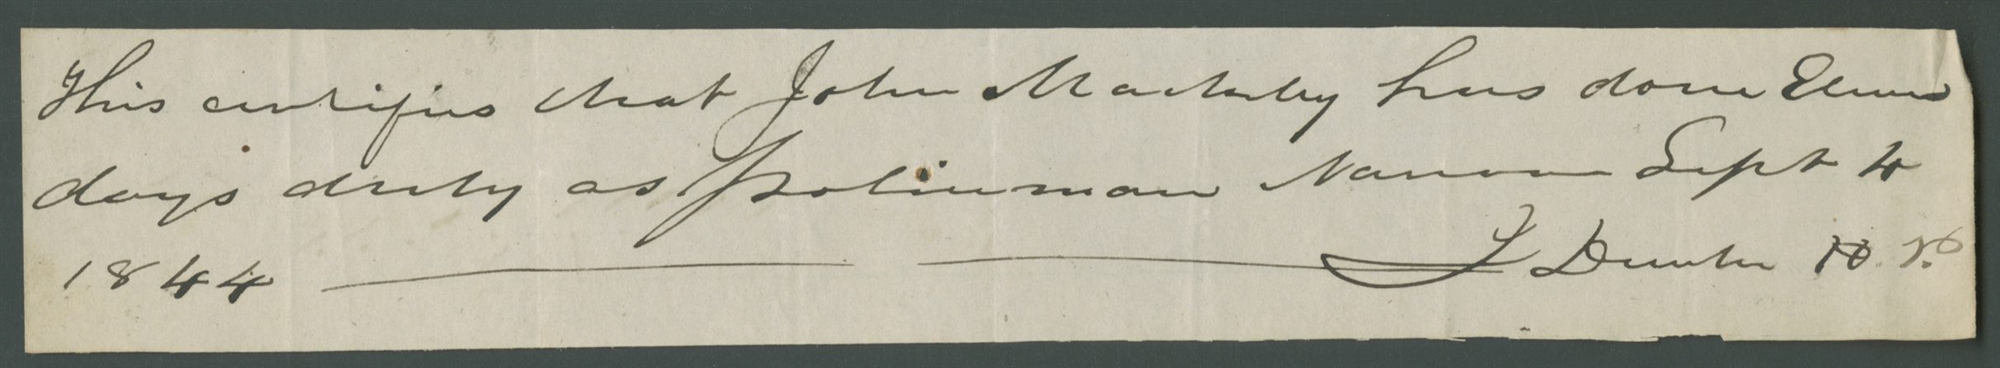 This certifies that John Mackeby has done Eleven
days duty as policeman Nauvoo Sept 4
1844 J Dunken H. P.